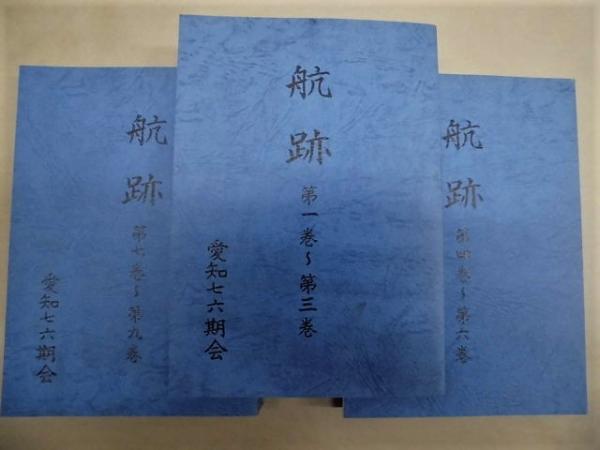 航跡
第一巻～第三巻
愛知七六期会
航跡
第四巻～第六巻
航跡
第七巻～第九巻
愛知七六期会